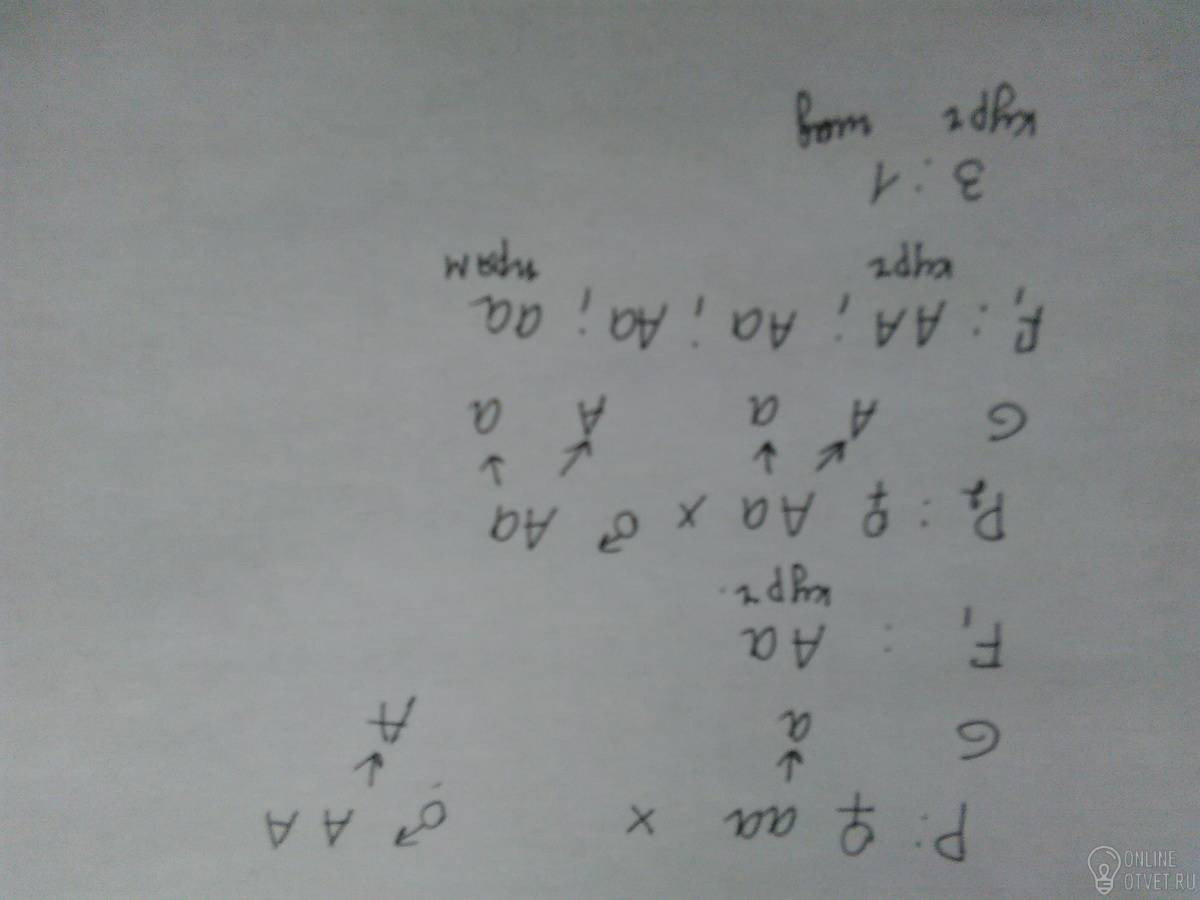 P: ♀ aa x ♂ AA
↓ ↓
G a A
F₁ : Aa
курч.
P₂ : ♀ Aa x ♂ Aa
↙ ↓ ↙ ↓
G A a A a
F₁ : AA ; Aa ; Aa ; aa
курч прям
3 : 1
курч
ONLINE
OTVET.RU